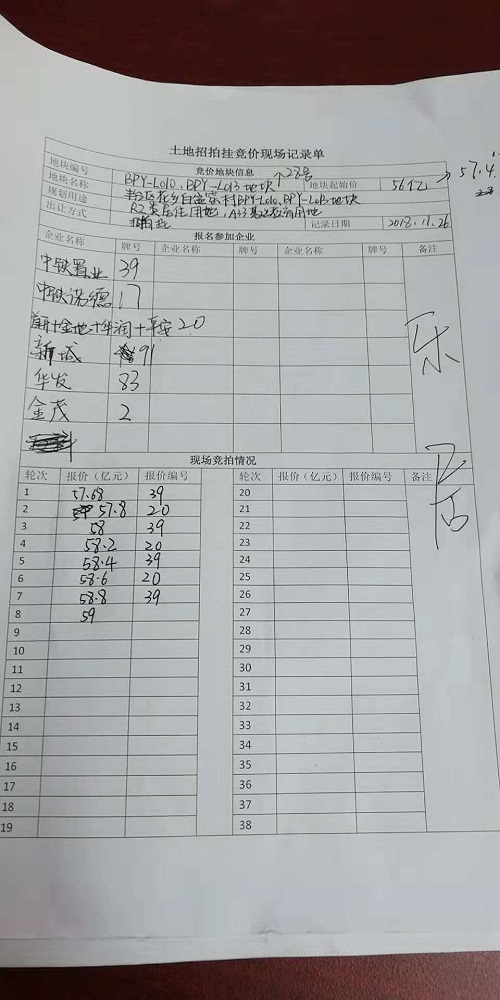 土地招拍挂竞价现场记录单
竞价地块信息
地块编号 BPY-L010、BPY-L013地块 28号
地块名称 丰台区花乡白盆窑村BPY-L010、BPY-L013地块 地块起始价 56亿 57.4
规划用途 R2类居住用地、A33基础教育用地
出让方式 招拍挂 记录日期 2018.11.26
报名参加企业
企业名称 牌号 企业名称 牌号 企业名称 牌号 备注
中铁置业 39
中铁诺德 17
首开+金地+华润+平安 20
新城 91
华发 83
金茂 2
现场竞拍情况
轮次 报价（亿元） 报价编号 轮次 报价（亿元） 报价编号 备注
1 57.68 39 20
2 57.8 20 21
3 58 39 22
4 58.2 20 23
5 58.4 39 24
6 58.6 20 25
7 58.8 39 26
8 59 27
9 28
10 29
11 30
12 31
13 32
14 33
15 34
16 35
17 36
18 37
19 38